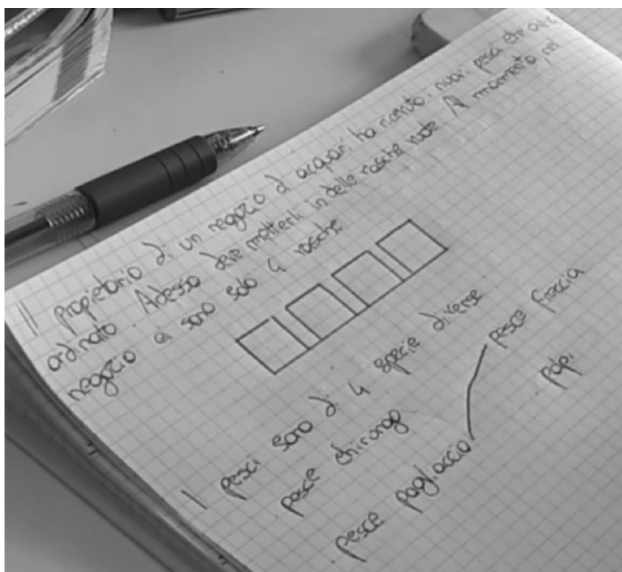 Il propietario di un negozio di acquari ha ricevuto i nuovi pesci che aveva
ordinato. Adesso deve metterli in delle vasche vuote. Al momento, nel
negozio ci sono solo 4 vasche
I pesci sono di 4 specie diverse
pesce chirurgo pesce freccia
pesce pagliaccio polpi